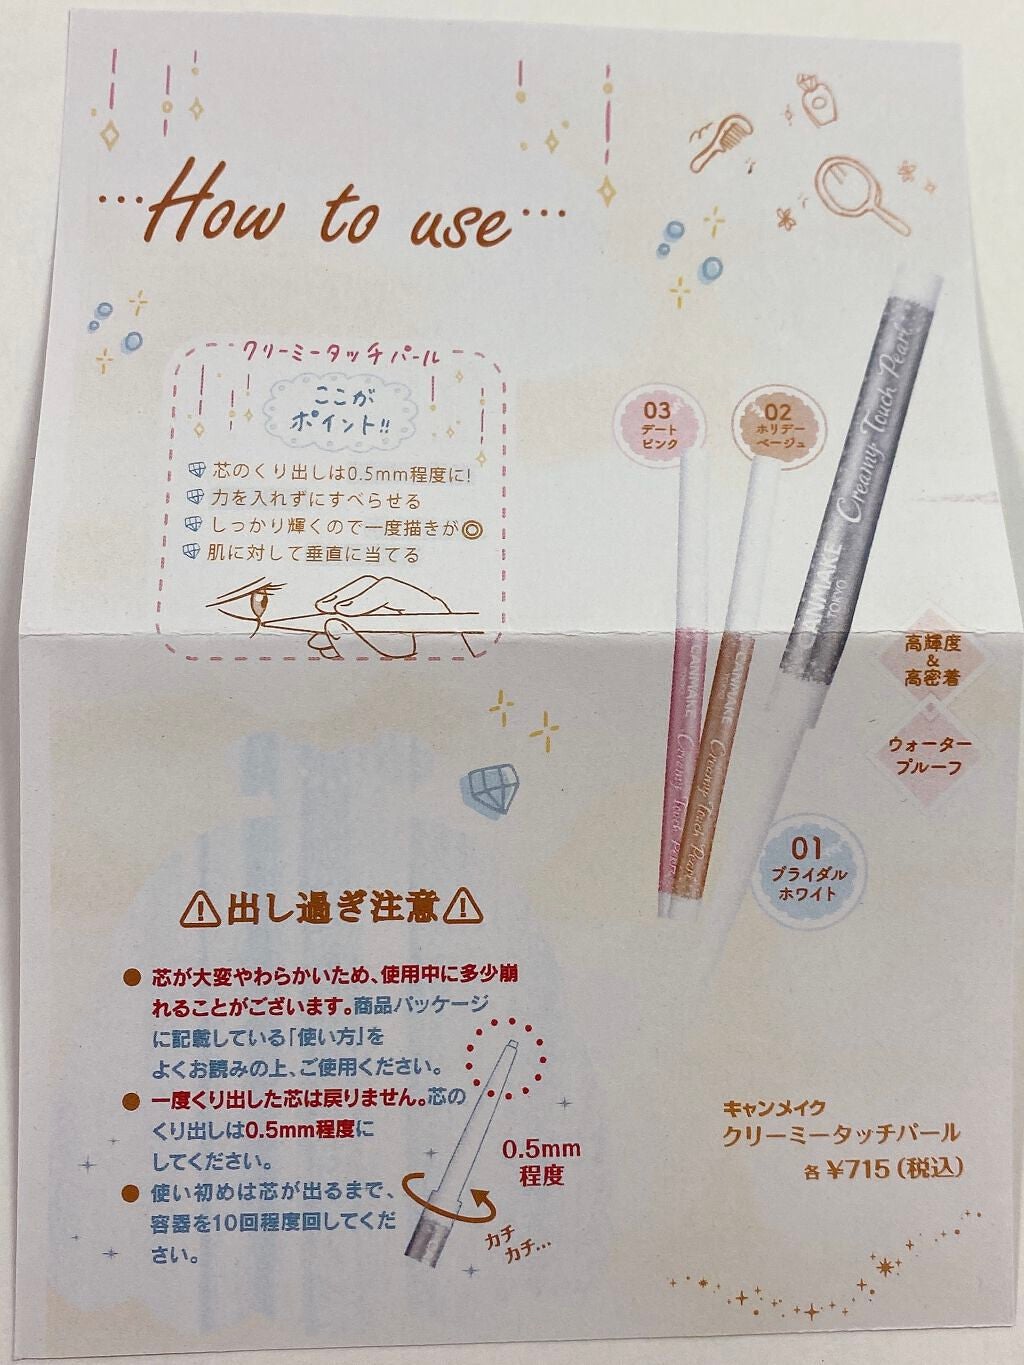 …How to use…
クリーミータッチパール
ここが
ポイント!!
芯のくり出しは0.5mm程度に!
力を入れずにすべらせる
しっかり輝くので一度描きが◎
肌に対して垂直に当てる
03
デート
ピンク
02
ホリデー
ベージュ
CANMAKE
TOKYO
Creamy Touch Pearl
CANMAKE
Creamy Touch Pearl
CANMAKE
Creamy Touch Pearl
高輝度
&
高密着
ウォーター
プルーフ
01
ブライダル
ホワイト
⚠出し過ぎ注意⚠
● 芯が大変やわらかいため、使用中に多少崩
れることがございます。商品パッケージ
に記載している「使い方」を
よくお読みの上、ご使用ください。
● 一度くり出した芯は戻りません。芯の
くり出しは0.5mm程度に
してください。
● 使い初めは芯が出るまで、
容器を10回程度回してくだ
さい。
0.5mm
程度
カチ
カチ…
キャンメイク
クリーミータッチパール
各¥715(税込)